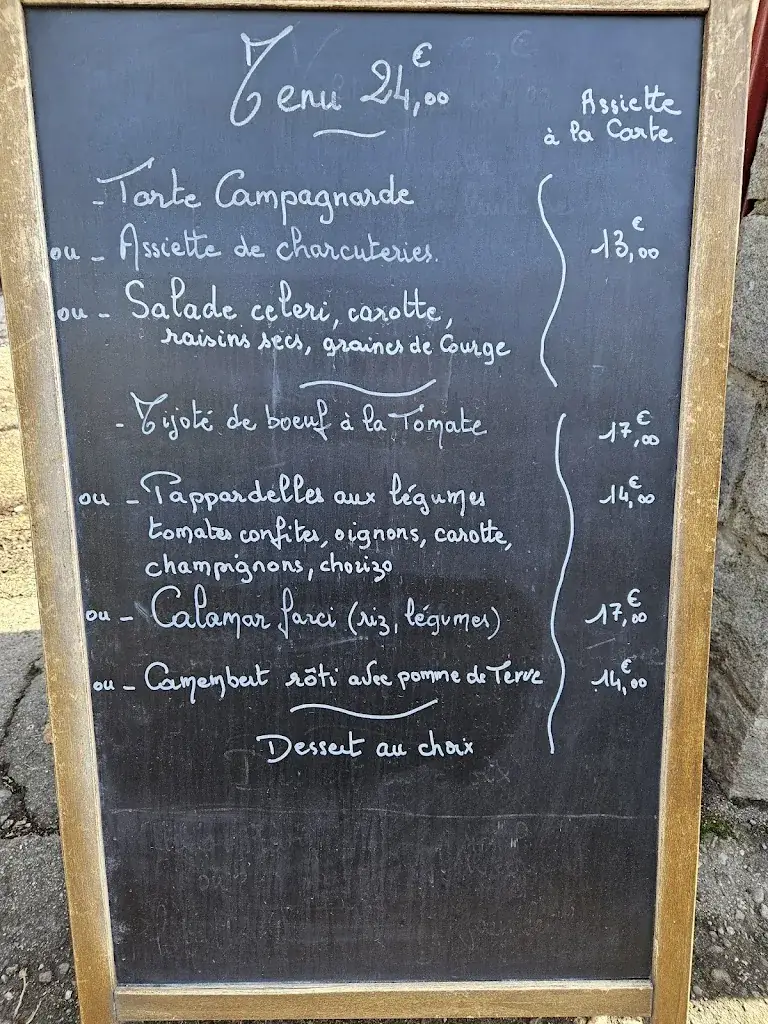 Menu 24,00 €
Assiette
à la Carte
- Tarte Campagnarde
ou - Assiette de charcuteries. 13,00 €
ou - Salade celeri, carotte,
raisins secs, graines de Courge
- Mijoté de boeuf à la Tomate 17,00 €
ou - Pappardelles aux légumes 14,00 €
tomates confites, oignons, carotte,
champignons, chorizo
ou - Calamar farci (riz, légumes) 17,00 €
ou - Camembert rôti avec pomme de Terre 14,00 €
Dessert au choix